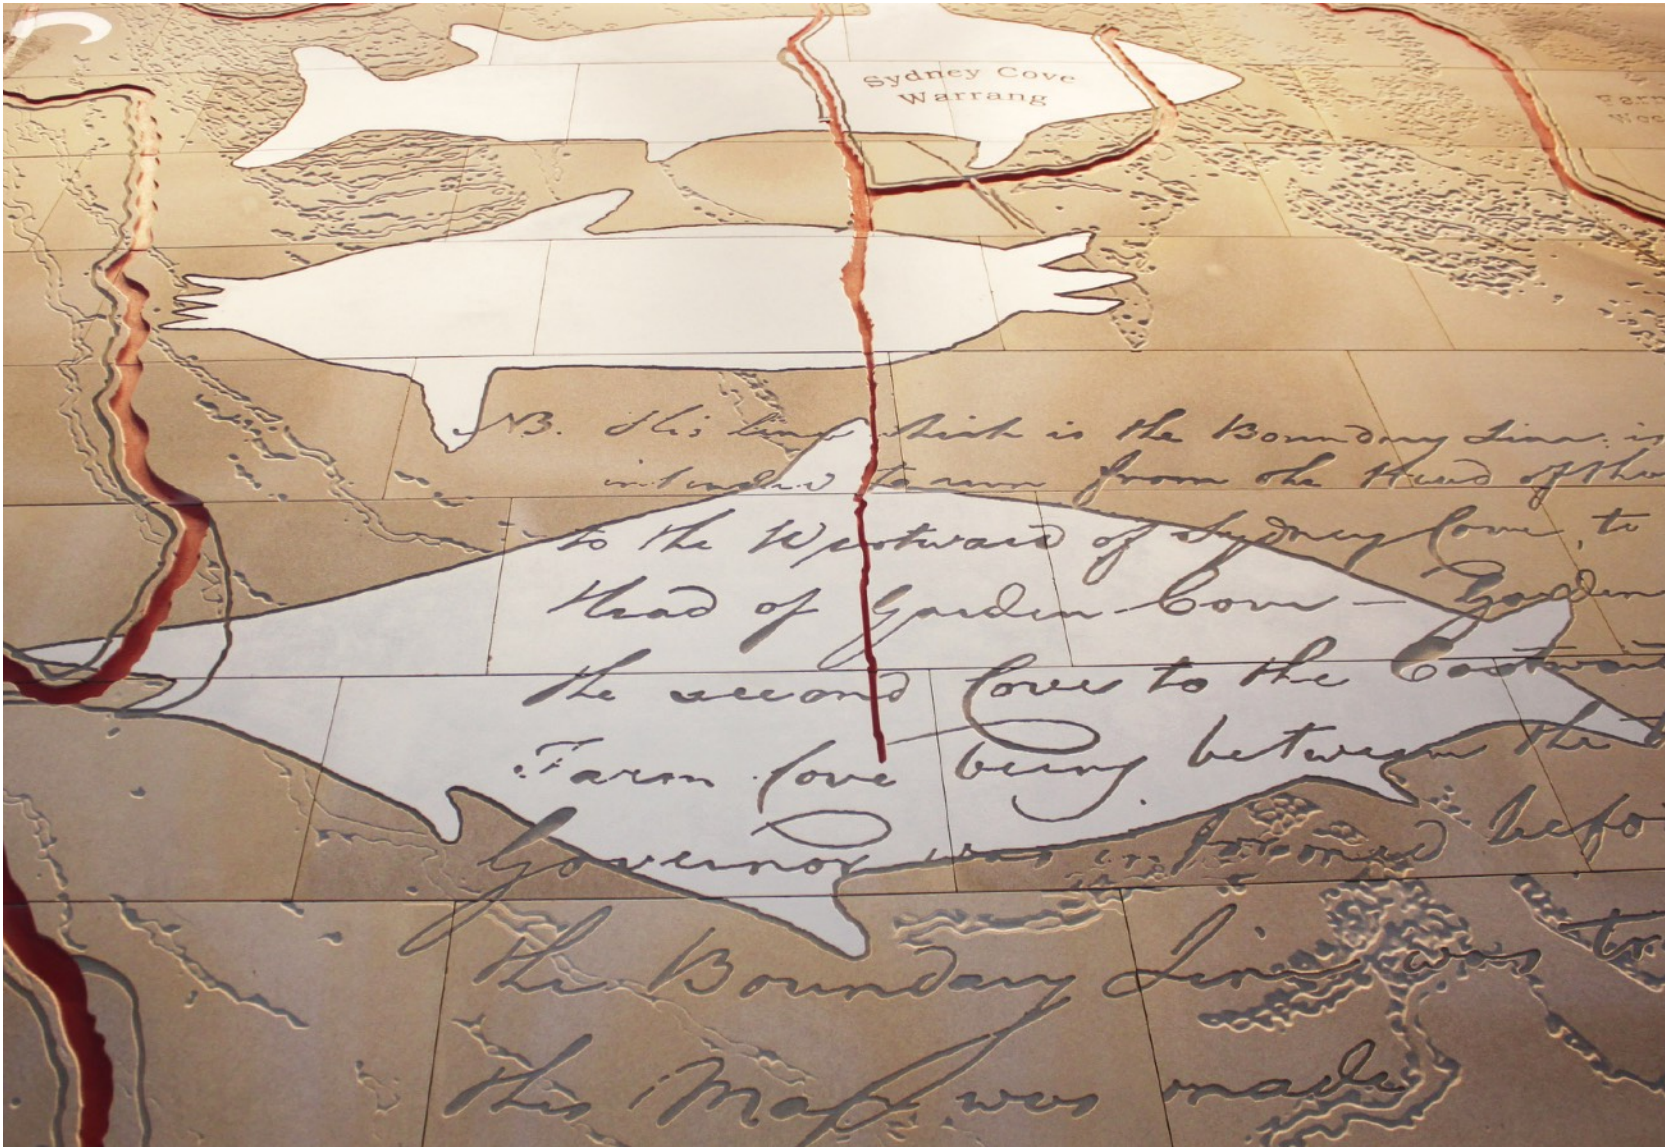 Sydney Cove
Warrang
Farm
NB. this line which is the Boundary Line is
intended to run from the Head of the
to the Westward of Sydney Cove, to
Head of Garden Cove — Garden
the second Cove to the Eastward
Farm Cove being between the
Governor was informed befo
the Boundary Line was tr
this Map was made